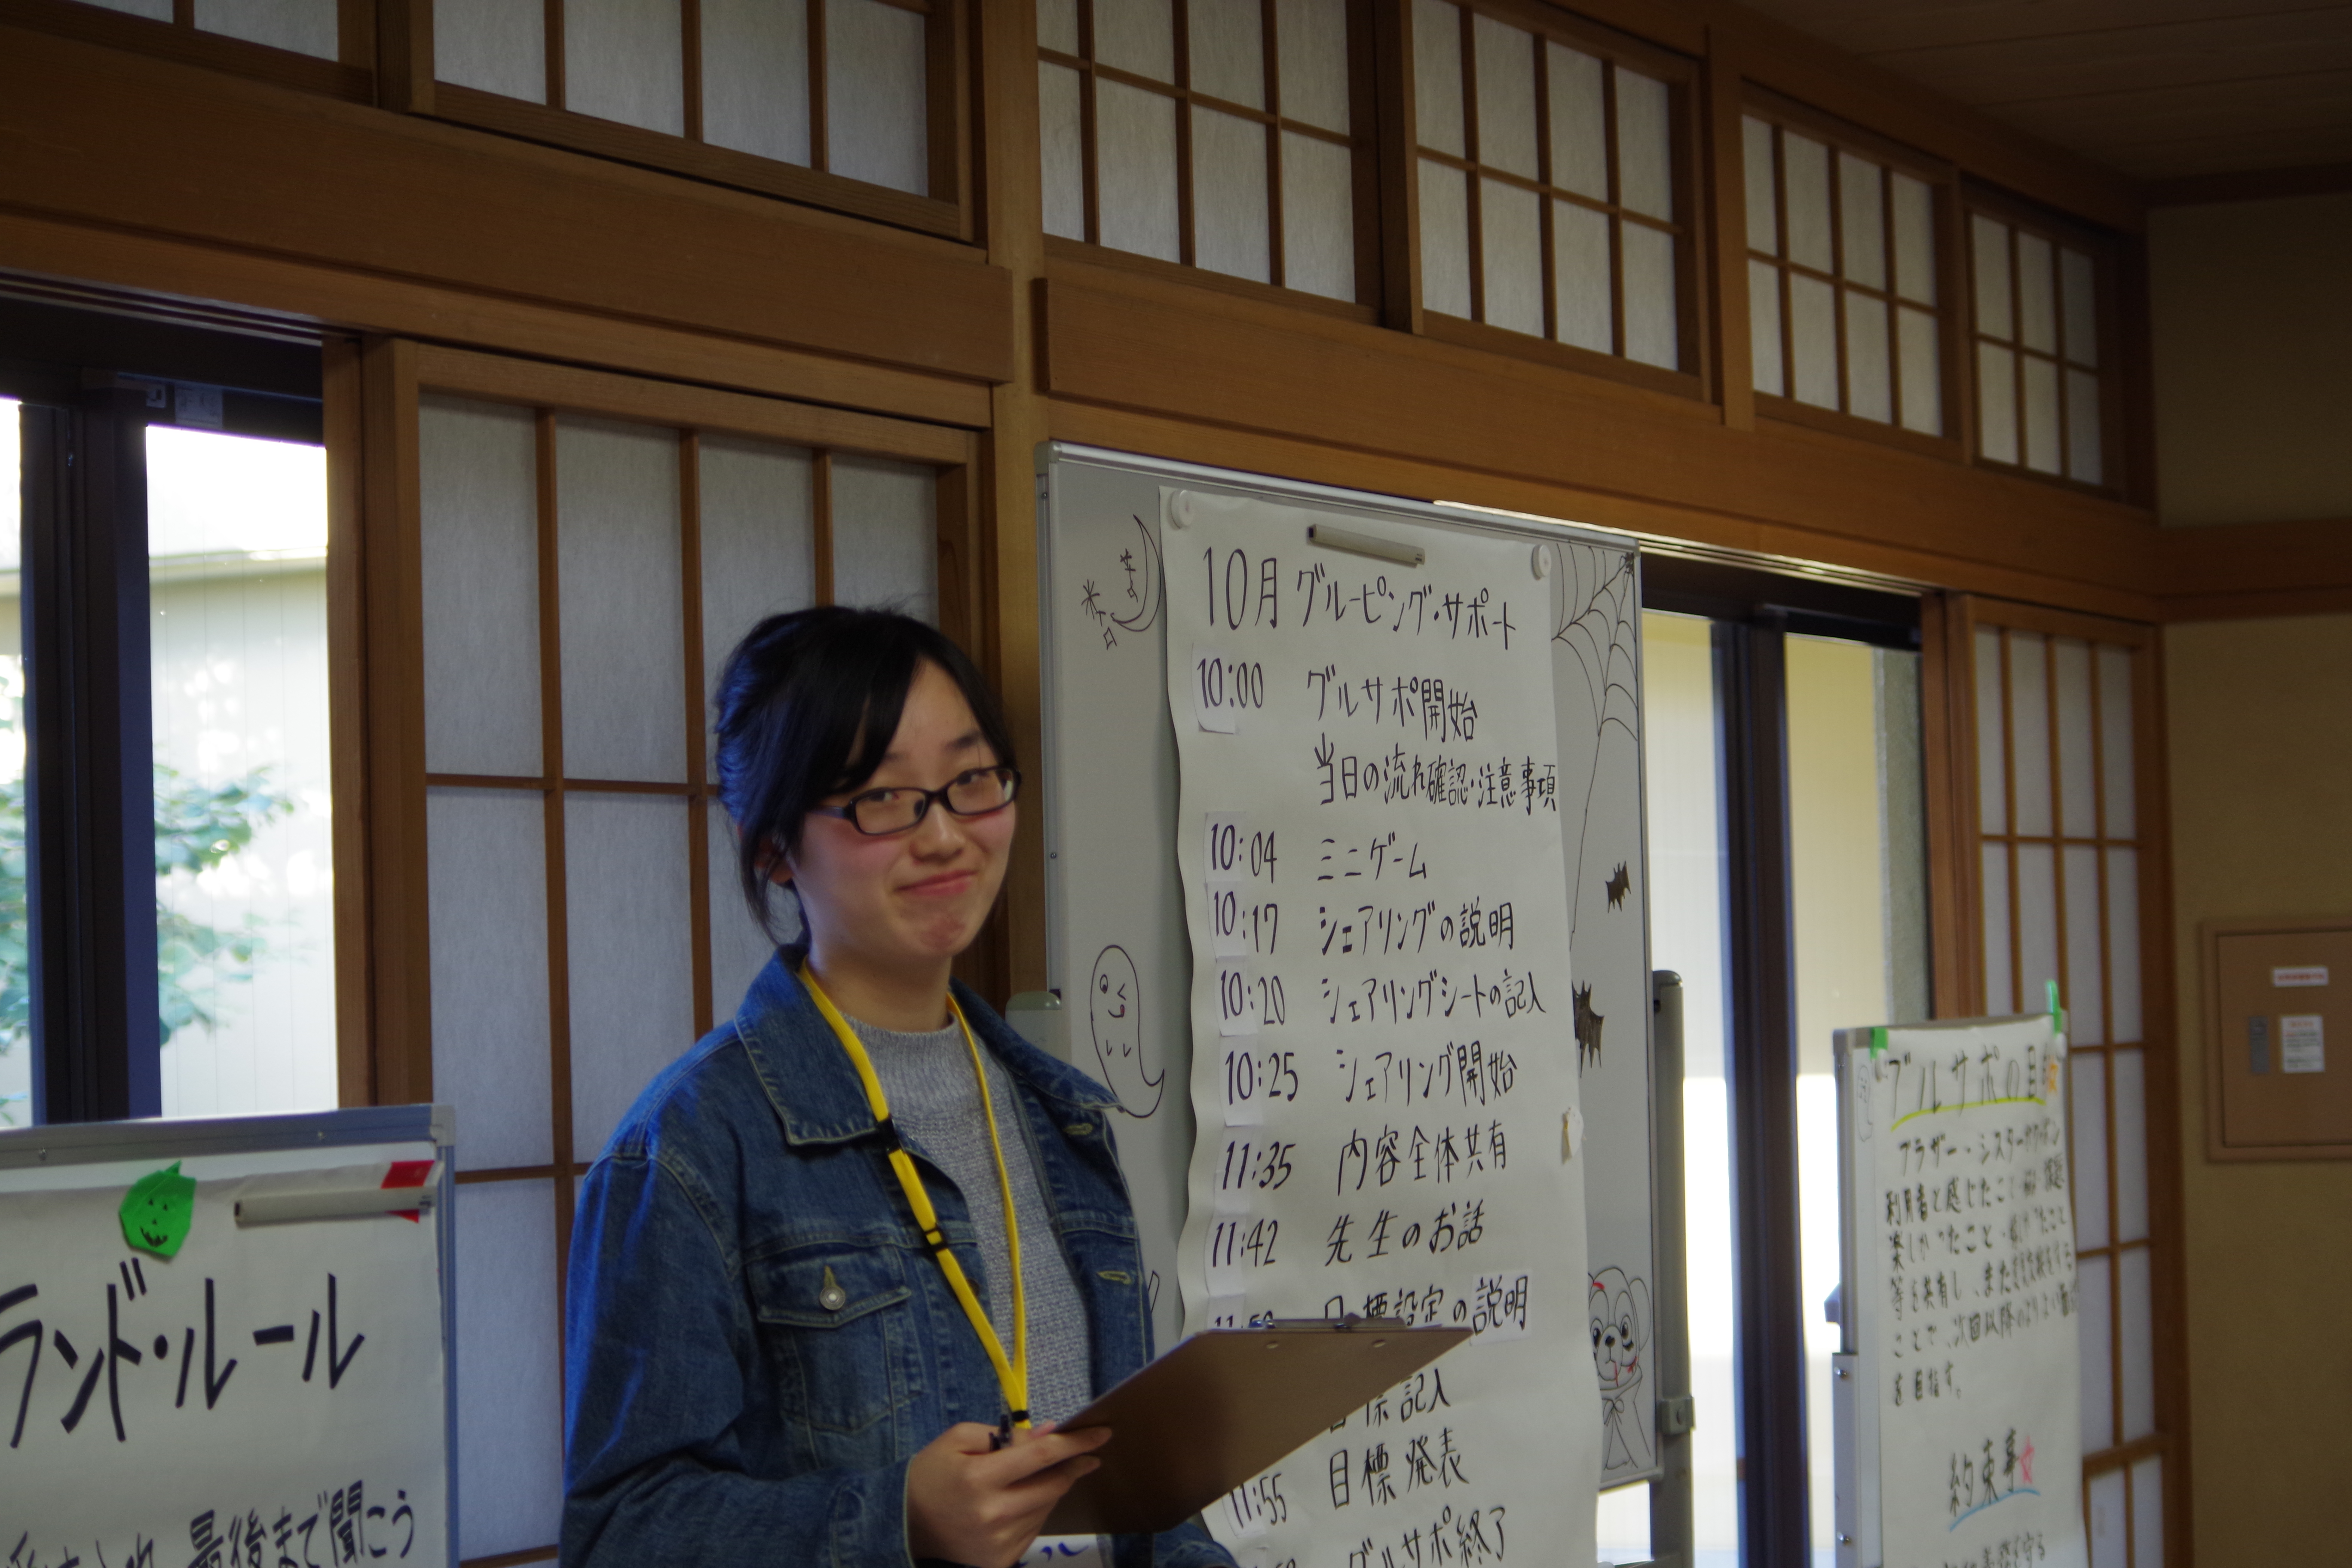 10月 グルーピング・サポート
10:00 グルサポ開始
当日の流れ確認・注意事項
10:04 ミニゲーム
10:17 シェアリングの説明
10:20 シェアリングシートの記入
10:25 シェアリング開始
11:35 内容全体共有
11:42 先生のお話
目標設定の説明
目標記入
11:55 目標発表
グルサポ終了
ランド・ルール
最後まで聞こう
グルサポの目
ブラザー・シスター
利用者と感じたこと
楽しかったこと
等を共有し、また
ことで、次回以降のより良い
を目指す。
約束事